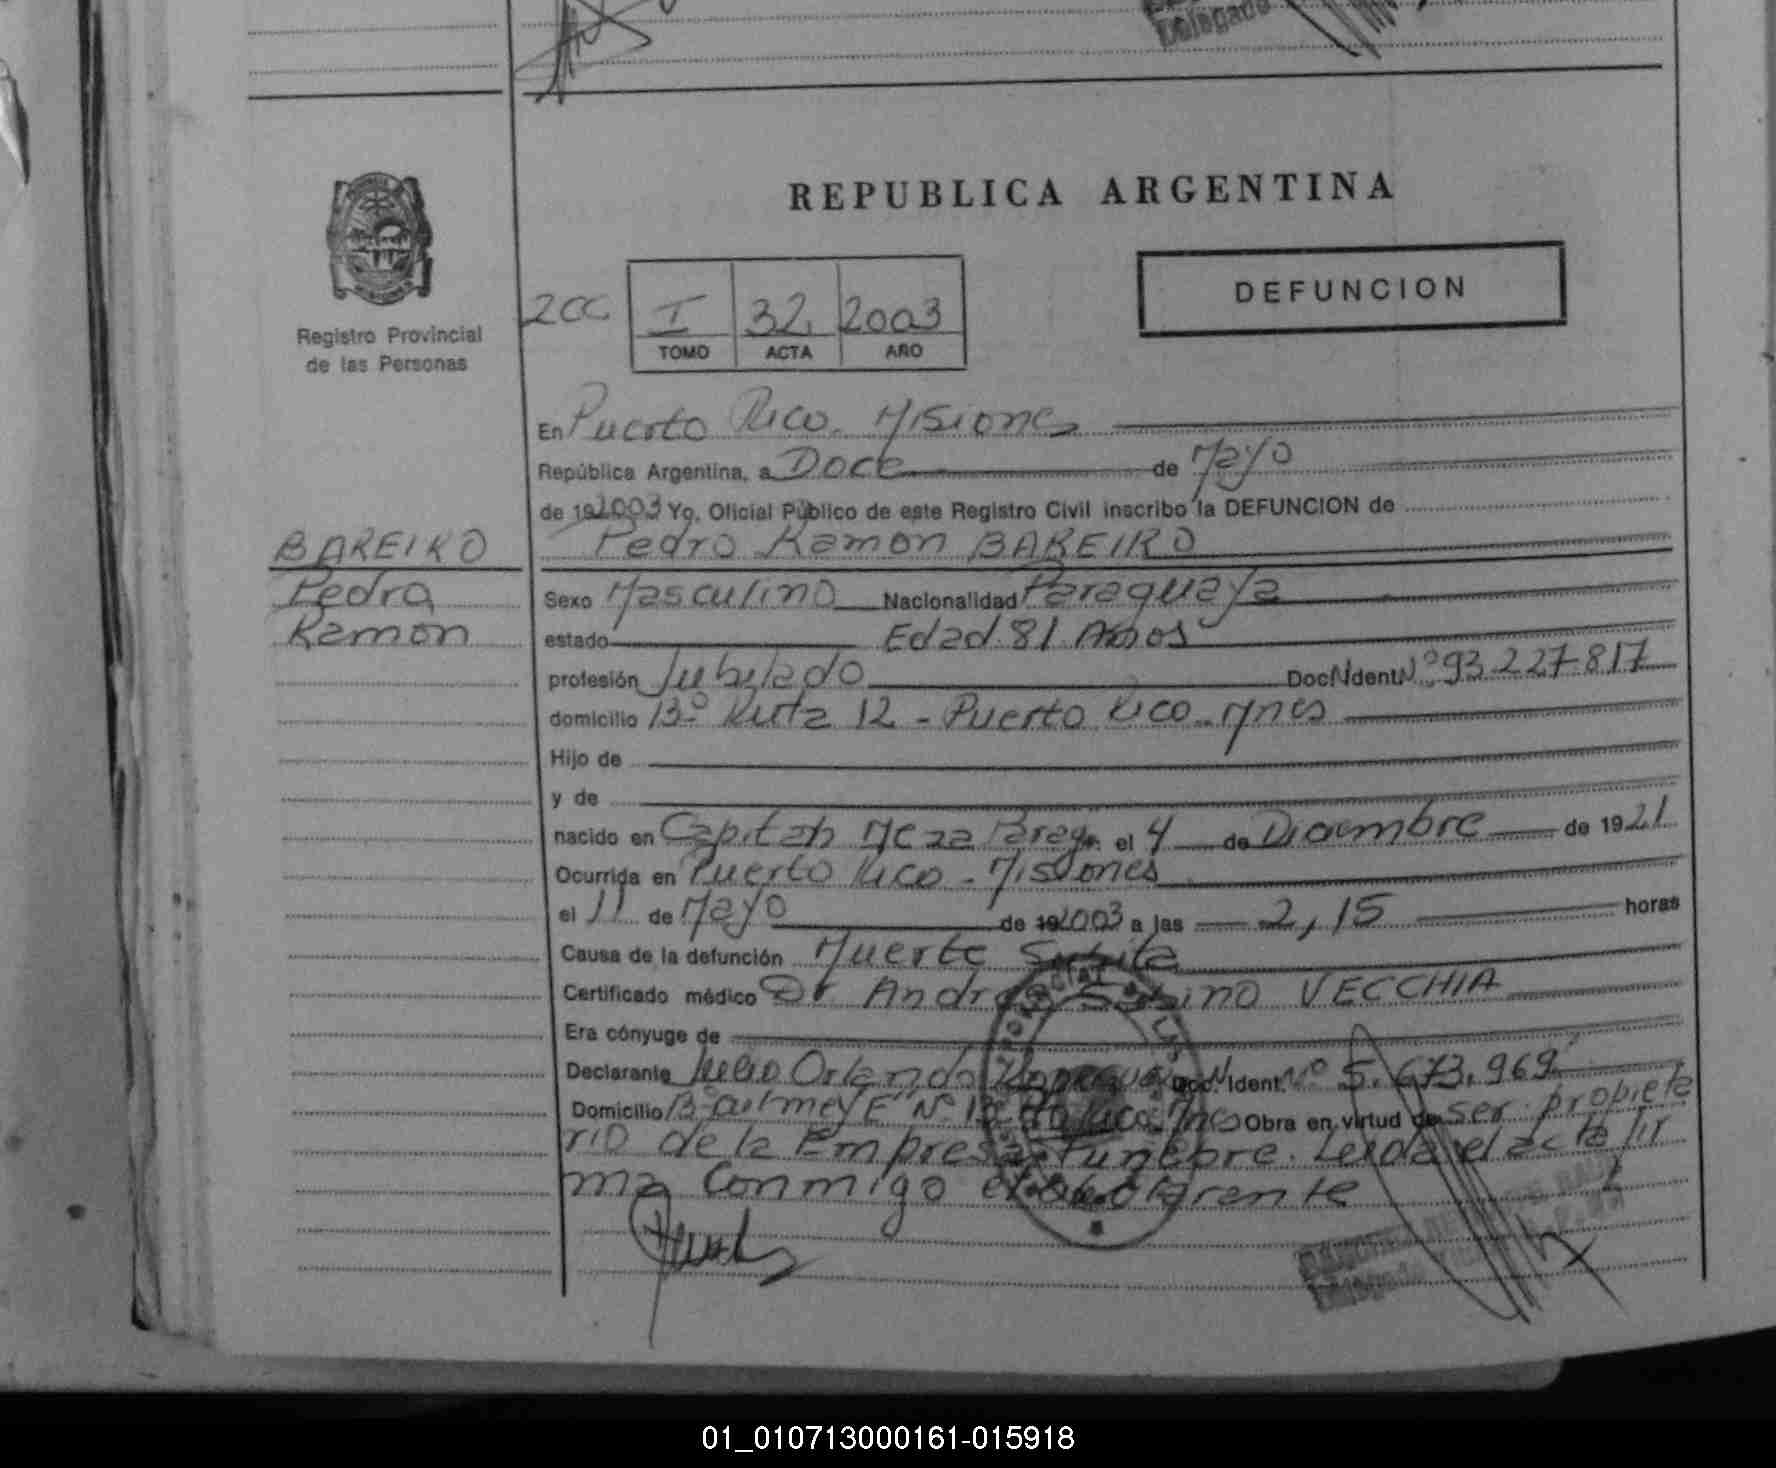 Delegado
REPUBLICA ARGENTINA
DEFUNCION
Registro Provincial
de las Personas
2CC I 32 2003
TOMO ACTA AÑO
En Puerto Rico. Misiones
República Argentina, a Doce de Mayo
de 19 2003 Yo, Oficial Público de este Registro Civil inscribo la DEFUNCION de
BAREIRO Pedro Ramon BAREIRO
Pedro Sexo Masculino Nacionalidad Paraguaya
Ramon estado Edad 81 Años
profesión Jubilado Doc. Ident. Nº 93.227.817
domicilio Bº Ruta 12 - Puerto Rico. Mnes
Hijo de
y de
nacido en Capitan Meza Parag. el 4 de Diciembre de 1921
Ocurrida en Puerto Rico - Misiones
el 11 de Mayo de 19 2003 a las 2,15 horas
Causa de la defunción Muerte Subita
Certificado médico Dr Andres Sabino VECCHIA
Era cónyuge de
Declarante Julio Orlando Doc. Ident. Nº 5.673.969
Domicilio Bº Nº Rico. Mnes Obra en virtud de ser propieta
rio de la Empresa Funebre. Leida el acta fir
ma conmigo el declarante
Delegado
01_010713000161-015918